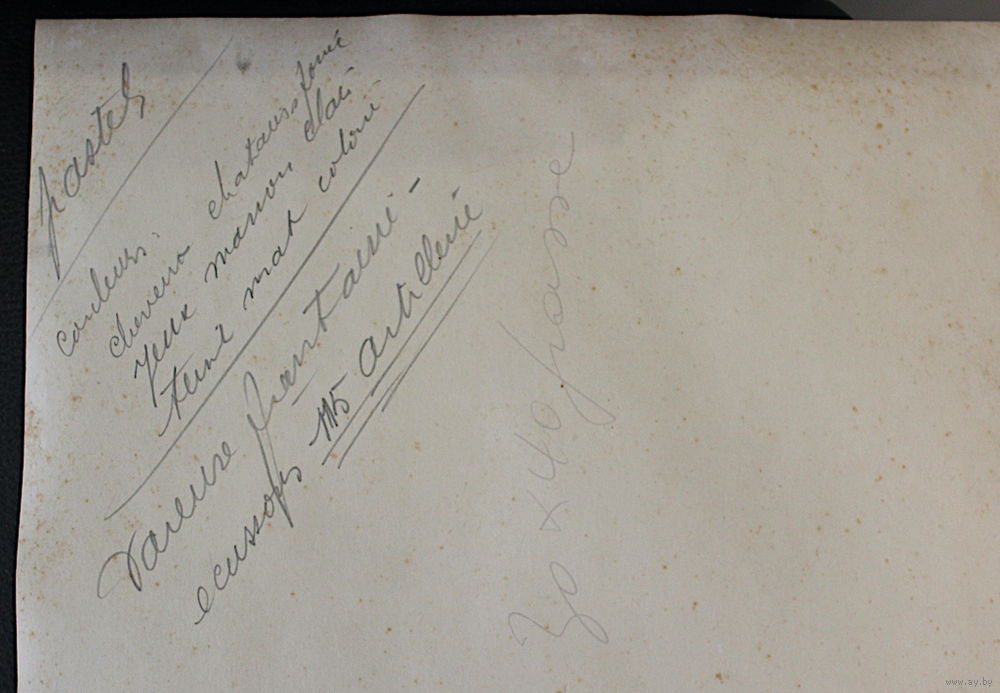 pastel
couleurs:
cheveux chatains foncé
yeux marron clair
teint mat coloré
Vareuse fantaisie -
ecussons 115 artillerie
30 x 40 passe
www.ay.by